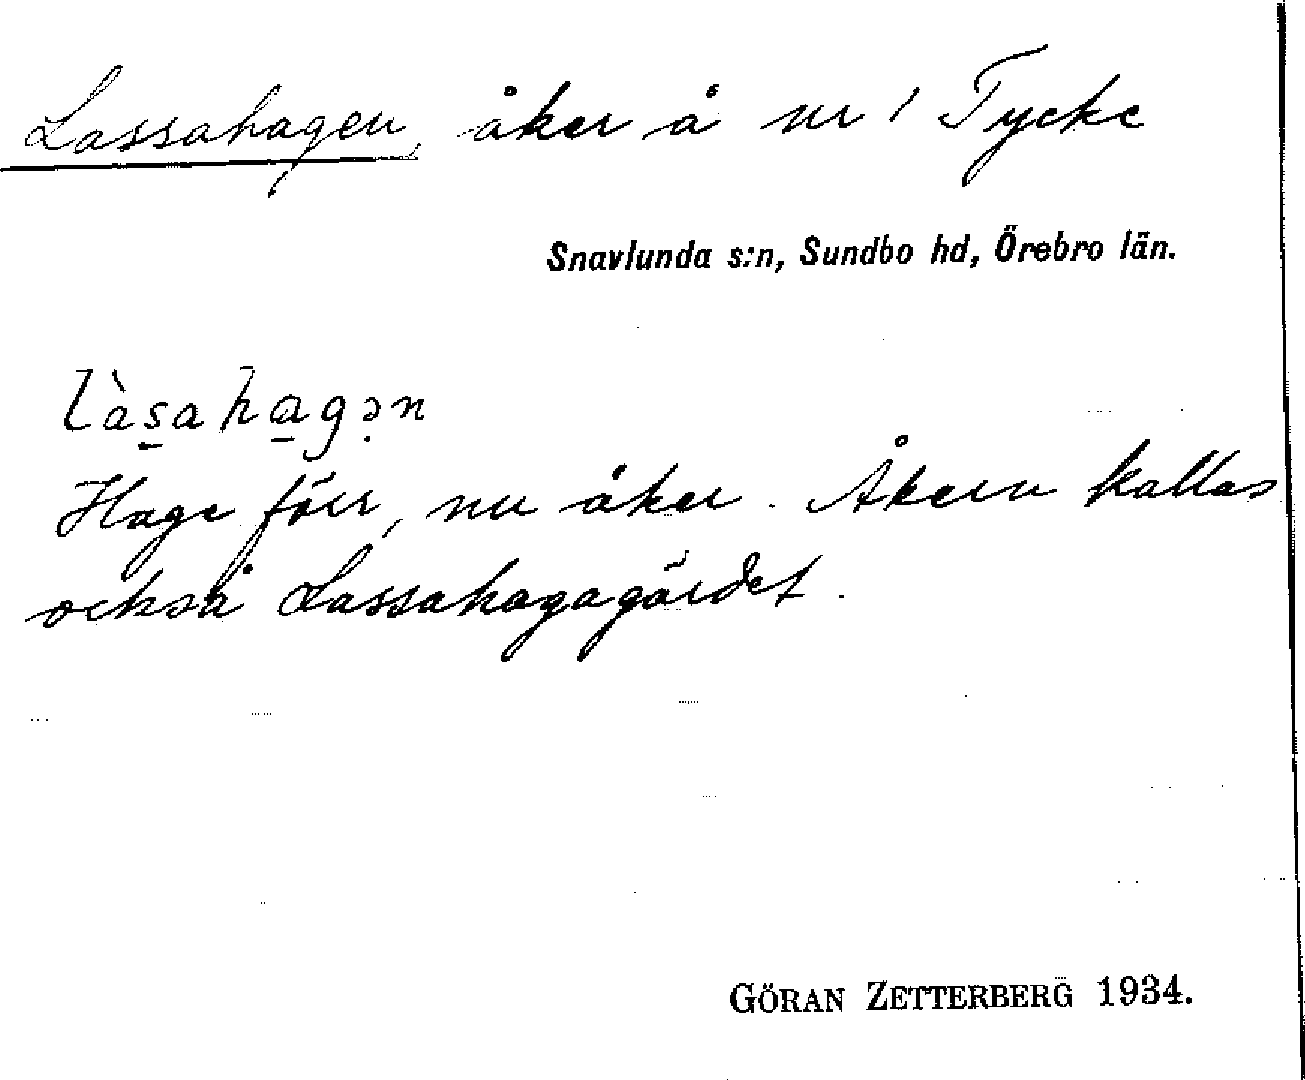 Lassahagen, åker å nr 1 Tycke
Snavlunda s:n, Sundbo hd, Örebro län.
làs̱aha̱gə̣n
Hage förr, nu åker. Åkern kallas
också Lassahagagärdet.
GÖRAN ZETTERBERG 1934.